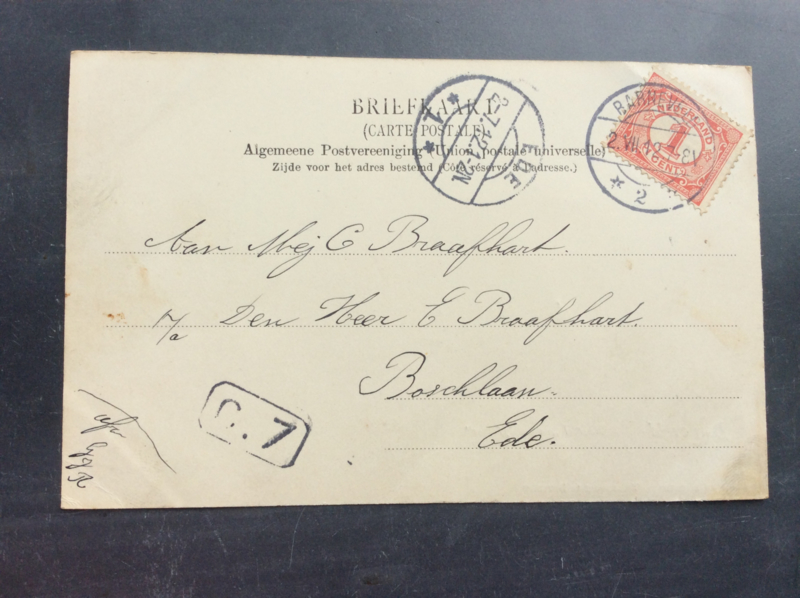 BRIEFKAART
(CARTE POSTALE)
Algemeene Postvereeniging (Union postale universelle)
Zijde voor het adres bestemd (Côté réservé à l'adresse.)
EDE
NEDERLAND
1
CENT
2
Aan Mej C Braafhart.
p/a Den Heer E Braafhart.
Boschlaan.
Ede.
C.7